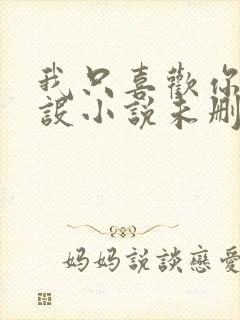 我只喜歡你
設小說未刪
媽媽說談戀愛